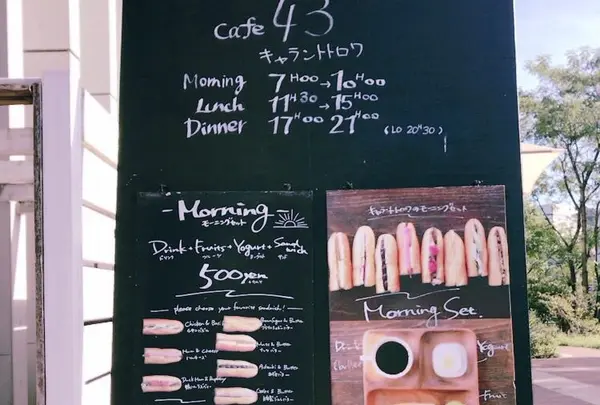 Cafe 43
キャラントトロワ
Morning 7H00→10H00
Lunch 11H30→15H00
Dinner 17H00 21H00 (LO 20H30)
- Morning -
モーニングセット
Drink + Fruits + Yogurt + Sandwich
500yen
please choose your favorite sandwich!
Chicken & Basil
Ham & Cheese
& Butter
& Butter
& Butter
& Butter
キャラントトロワのモーニングセット
Morning Set.
Drink
Yogurt
Fruit